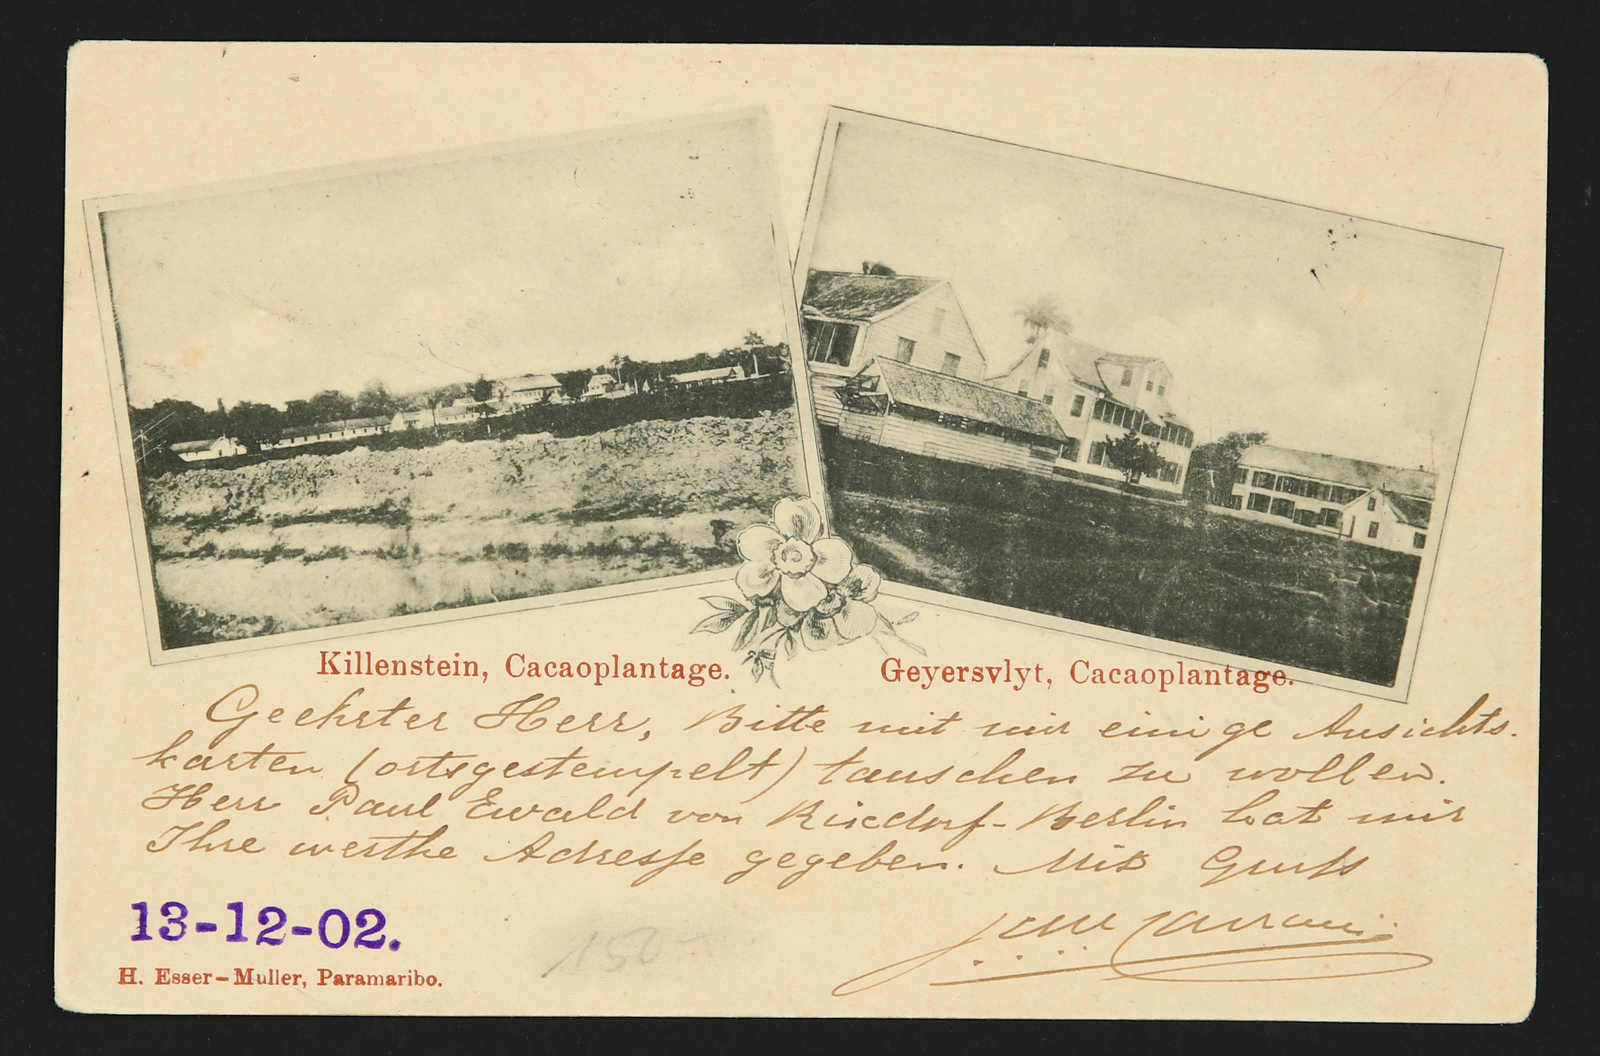 Killenstein, Cacaoplantage.
Geyersvlyt, Cacaoplantage.
Geehrter Herr, Bitte mit mir einige Ansichts-
karten (ortsgestempelt) tauschen zu wollen.
Herr Paul Ewald von Rixdorf-Berlin hat mir
Ihre werthe Adresse gegeben. Mit Gruß
13-12-02.
150.-
H. Esser-Muller, Paramaribo.